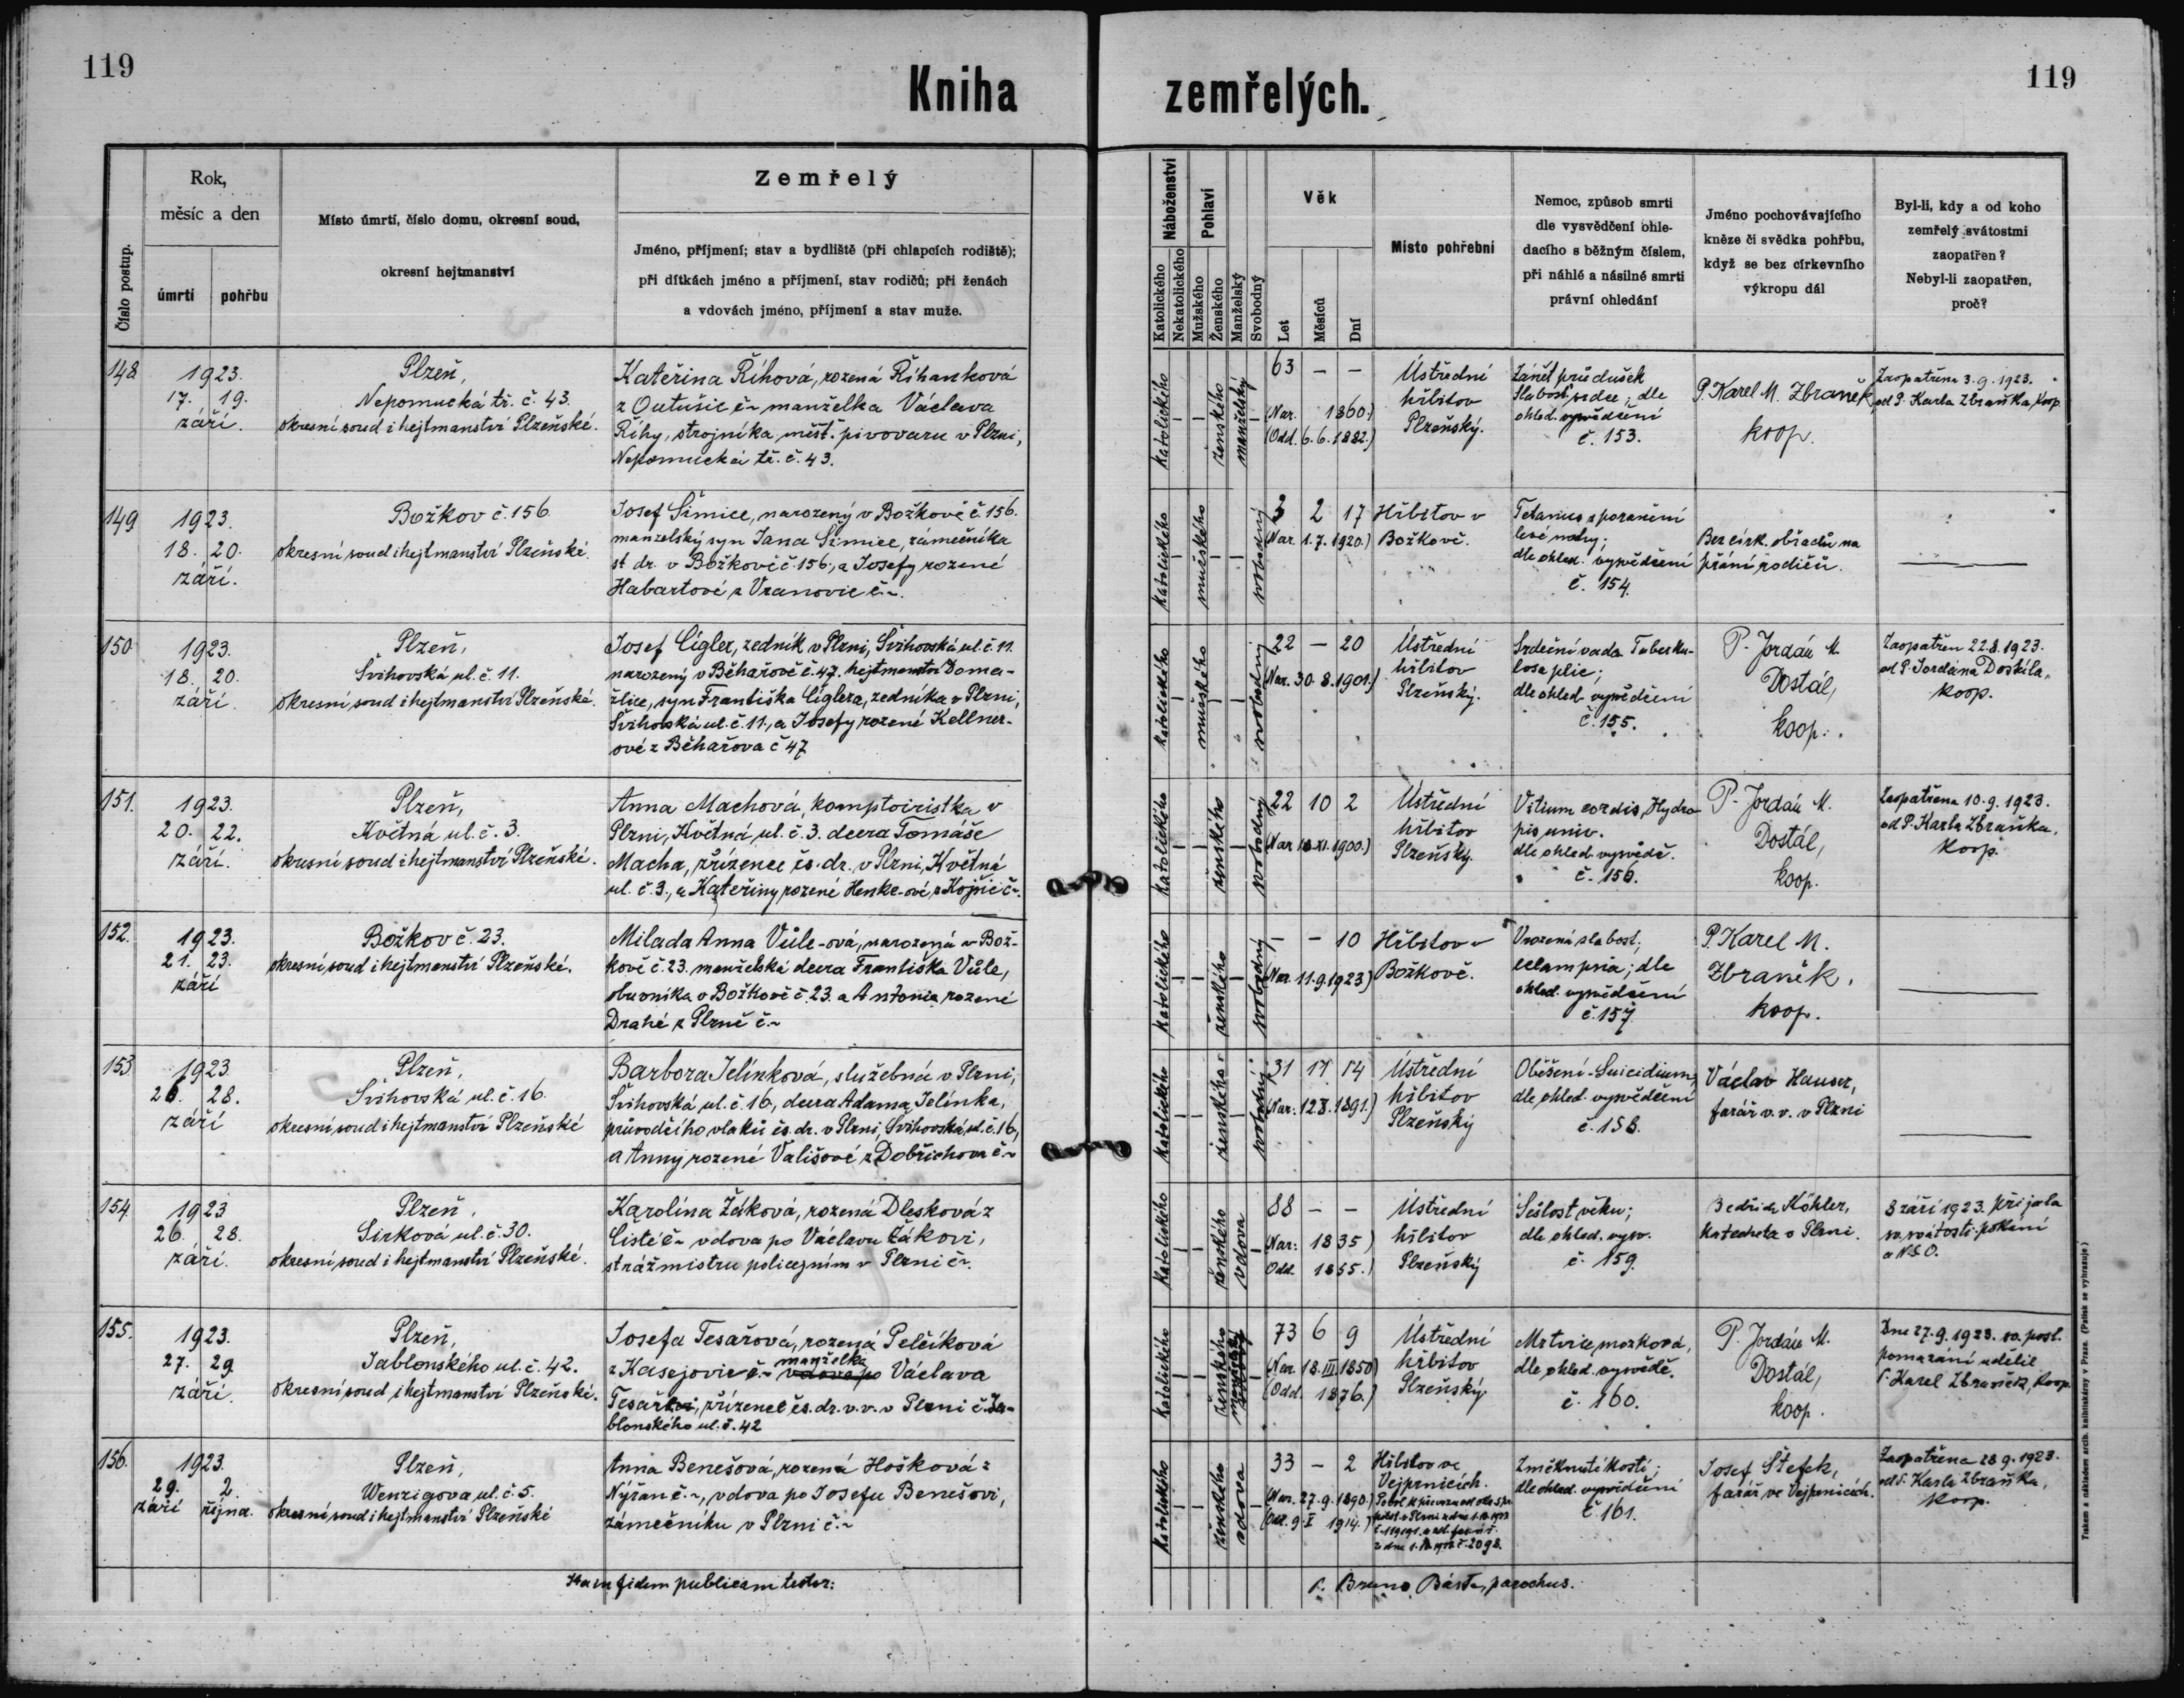 119
Kniha
zemřelých.
119
Číslo postup.
Rok,
měsíc a den
úmrtí
pohřbu
Místo úmrtí, číslo domu, okresní soud,
okresní hejtmanství
Zemřelý
Jméno, příjmení; stav a bydliště (při chlapcích rodiště);
při dítkách jméno a příjmení, stav rodičů; při ženách
a vdovách jméno, příjmení a stav muže.
Náboženství
Katolického
Nekatolického
Pohlaví
Mužského
Ženského
Manželský
Svobodný
Věk
Let
Měsíců
Dní
Místo pohřební
Nemoc, způsob smrti
dle vysvědčení ohle-
dacího s běžným číslem,
při náhlé a násilné smrti
právní ohledání
Jméno pochovávajícího
kněze či svědka pohřbu,
když se bez církevního
výkropu dál
Byl-li, kdy a od koho
zemřelý svátostmi
zaopatřen?
Nebyl-li zaopatřen,
proč?
148
1923.
17. 19.
září.
Plzeň,
Nepomucká tř. č. 43.
okresní soud i hejtmanství Plzeňské.
Kateřina Říhová, rozená Říhanková
z Outušic č~ manželka Václava
Říhy, strojníka měšť. pivovaru v Plzni,
Nepomucká tř. č. 43.
Katolického
ženského
manželský
63 – –
(Nar. 1860.)
(Odd. 6.6.1882.)
Ústřední
hřbitov
Plzeňský.
Zánět průdušek
Slabost srdce; dle
ohled. vysvědčení
č. 153.
P. Karel M. Zbraněk,
koop.
Zaopatřena 3.9.1923.
od P. Karla Zbraňka, koop.
149
1923.
18. 20.
září.
Božkov č. 156
okresní soud i hejtmanství Plzeňské.
Josef Šimice, narozený v Božkově č 156.
manželský syn Jana Šimice, zámečníka
st dr. v Božkově č. 156, a Josefy rozené
Habartové z Vranovic č.~
Katolického
mužského
svobodný
3 2 17
(Nar. 1.7.1920.)
Hřbitov v
Božkově.
Tetanus z poranění
levé nohy;
dle ohled. vysvědčení
č. 154.
Bez círk. obřadů na
přání rodičů.
150
1923.
18. 20.
září.
Plzeň,
Švihovská ul. č. 11.
okresní soud i hejtmanství Plzeňské.
Josef Cígler, zedník v Plzni, Švihovská ul. č. 11.
narozený v Běhařově č. 47. hejtmanství Doma-
žlice, syn Františka Cíglera, zedníka v Plzni,
Švihovská ul. č. 11, a Josefy rozené Kellner-
ové z Běhařova č 47
Katolického
mužského
svobodný
22 – 20
(Nar. 30.8.1901.)
Ústřední
hřbitov
Plzeňský.
Srdeční vada Tuberku-
losa plic;
dle ohled. vysvědčení
č. 155.
P. Jordán M.
Dostál,
koop.
Zaopatřen 22.8.1923.
od P. Jordána Dostála,
koop.
151.
1923.
20. 22.
září.
Plzeň,
Květná ul. č. 3.
okresní soud i hejtmanství Plzeňské.
Anna Machová, komptoiristka v
Plzni, Květná ul. č. 3. dcera Tomáše
Macha, zřízence čs. dr., v Plzni, Květná
ul. č. 3., a Kateřiny rozené Henke-ové, z Kojšic č~
Katolického
ženského
svobodný
22 10 2
(Nar. 18.XI.1900.)
Ústřední
hřbitov
Plzeňský.
Vitium cordis, Hydro
pis univ.
dle ohled. vysvědč.
č. 156.
P. Jordán M.
Dostál,
koop.
Zaopatřena 10.9.1923.
od P. Karla Zbraňka,
koop.
152.
1923.
21. 23.
září
Božkov č. 23.
okresní soud i hejtmanství Plzeňské.
Milada Anna Vůle-ová, narozená v Bož-
kově č. 23. manželská dcera Františka Vůle,
obuvníka v Božkově č. 23. a Antonie rozené
Drahé z Plzně č.~
Katolického
ženského
svobodný
– – 10
(Nar. 11.9.1923)
Hřbitov v
Božkově.
Vrozená slabost;
eclampsia; dle
ohled. vysvědčení
č. 157.
P. Karel M.
Zbraněk,
koop.
153
1923.
26. 28.
září
Plzeň,
Švihovská ul. č. 16.
okresní soud i hejtmanství Plzeňské
Barbora Jelínková, služebná v Plzni,
Švihovská ul. č. 16, dcera Adama Jelínka,
průvodčího vlaků čs. dr. v Plzni, Švihovská ul. č. 16,
a Anny rozené Vališové z Dobřichova č~
Katolického
ženského
svobodný
31 14
Ústřední
hřbitov
Plzeňský
Oběšení - Suicidium,
dle ohled. vysvědčení
č. 158.
Václav Hauser,
farář v. v. v Plzni
154.
1923
26. 28.
září.
Plzeň,
Sirková ul. č. 30.
okresní soud i hejtmanství Plzeňské.
Karolína Žáková, rozená Dlesková z
Čisté č~ vdova po Václavu Žákovi,
strážmistru policejním v Plzni č~.
Katolického
ženského
vdova
88 – –
(Nar: 1835)
Odd. 1855.)
Ústřední
hřbitov
Plzeňský
Sešlost věku;
dle ohled. vysv.
č. 159.
Bedřich Köhler,
katecheta v Plzni.
8 září 1923. přijala
sv. svátosti pokání
a N.S.O.
155.
1923.
27. 29.
září.
Plzeň,
Jablonského ul. č. 42.
okresní soud i hejtmanství Plzeňské.
Josefa Tesařová, rozená Pelčíková
manželka
z Kasejovic č.~ vdova po Václava
Tesaře, zřízence čs. dr. v. v. v Plzni č. Ja-
blonského ul. č. 42
Katolického
ženského
73 6 9
(Nar. 18.III.1850)
(Odd. 1876.)
Ústřední
hřbitov
Plzeňský.
Mrtvice mozková,
dle ohled. vysvědč.
č. 160.
P. Jordán M.
Dostál,
koop.
Dne 27.9.1923. sv. posl.
pomazání udělil
P. Karel Zbraněk, koop.
156.
1923.
29. 2.
září října.
Plzeň,
Wenzigova ul. č. 5.
okresní soud i hejtmanství Plzeňské
Anna Benešová, rozená Hošková z
Nýřan č.~, vdova po Josefu Benešovi,
zámečníku v Plzni č.~
Katolického
ženského
vdova
33 – 2
(Nar. 27.9.1890.)
(Odd. 9.I 1914.)
Hřbitov ve
Vejprnicích.
č. 2098.
Změknutí kostí;
dle ohled. vysvědčení
č. 161.
Josef Štefek,
farář ve Vejprnicích.
Zaopatřena 28.9.1923.
od P. Karla Zbraňka,
koop.
Ham fidem publicam testor:
P. Bruno Bárta, parochus.
Tiskem a nákladem arcib. knihtiskárny v Praze. (Patisk se vyhrazuje)